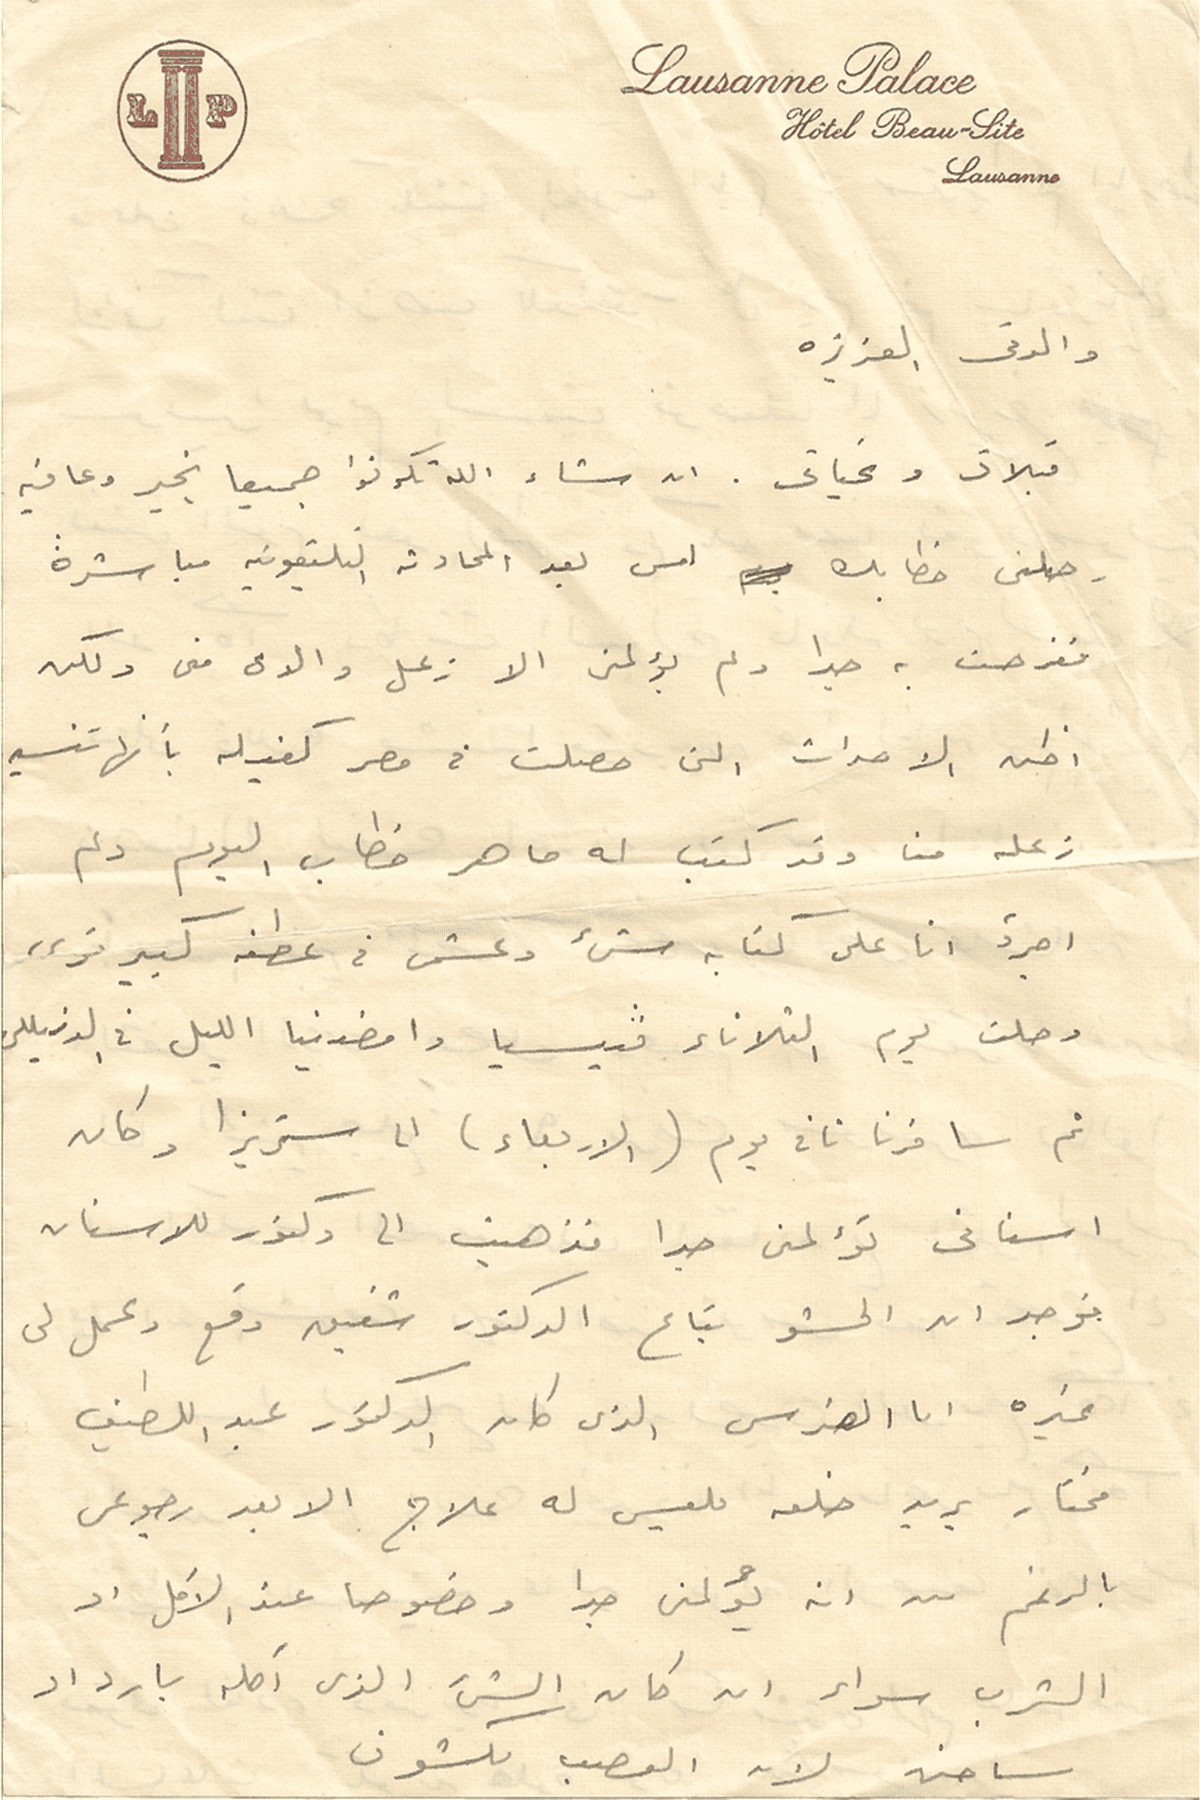 L P
Lausanne Palace
Hôtel Beau-Site
Lausanne
والدتى العزيزه
قبلاتى وتحياتى . ان شاء الله تكونوا جميعا بخير وعافيه
وصلنى خطابك امس بعد المحادثه التليفونيه مباشرة
ففرحت به جدا ولم يؤلمنى الا زعل والدى منى ولكن
اظن الاحداث التى حصلت فى مصر كفيله بأنها تنسيه
زعله منا وقد كتب له ماهر خطاب اليوم ولم
اجرؤ انا على كتابه شئ وعشمى فى عطفه كبير قوى
وصلت يوم الثلاثاء ڤينيسيا وامضينا الليل فى
ثم سافرنا ثانى يوم (الاربعاء) الى ستريزا وكان
اسنانى تؤلمنى جدا فذهبت الى دكتور للاسنان
فوجد ان الحشو بتاع الدكتور شفيق وقع وعمل لى
غيره اما الضرس الذى كان الدكتور عبد اللطيف
مختار يريد خلعه فليس له علاج الا بعد رجوعى
بالرغم من انه يؤلمنى جدا وخصوصا عند الأكل او
الشرب سواء ان كان الشئ الذى آكله بارد او
ساخن لان العصب مكشوف